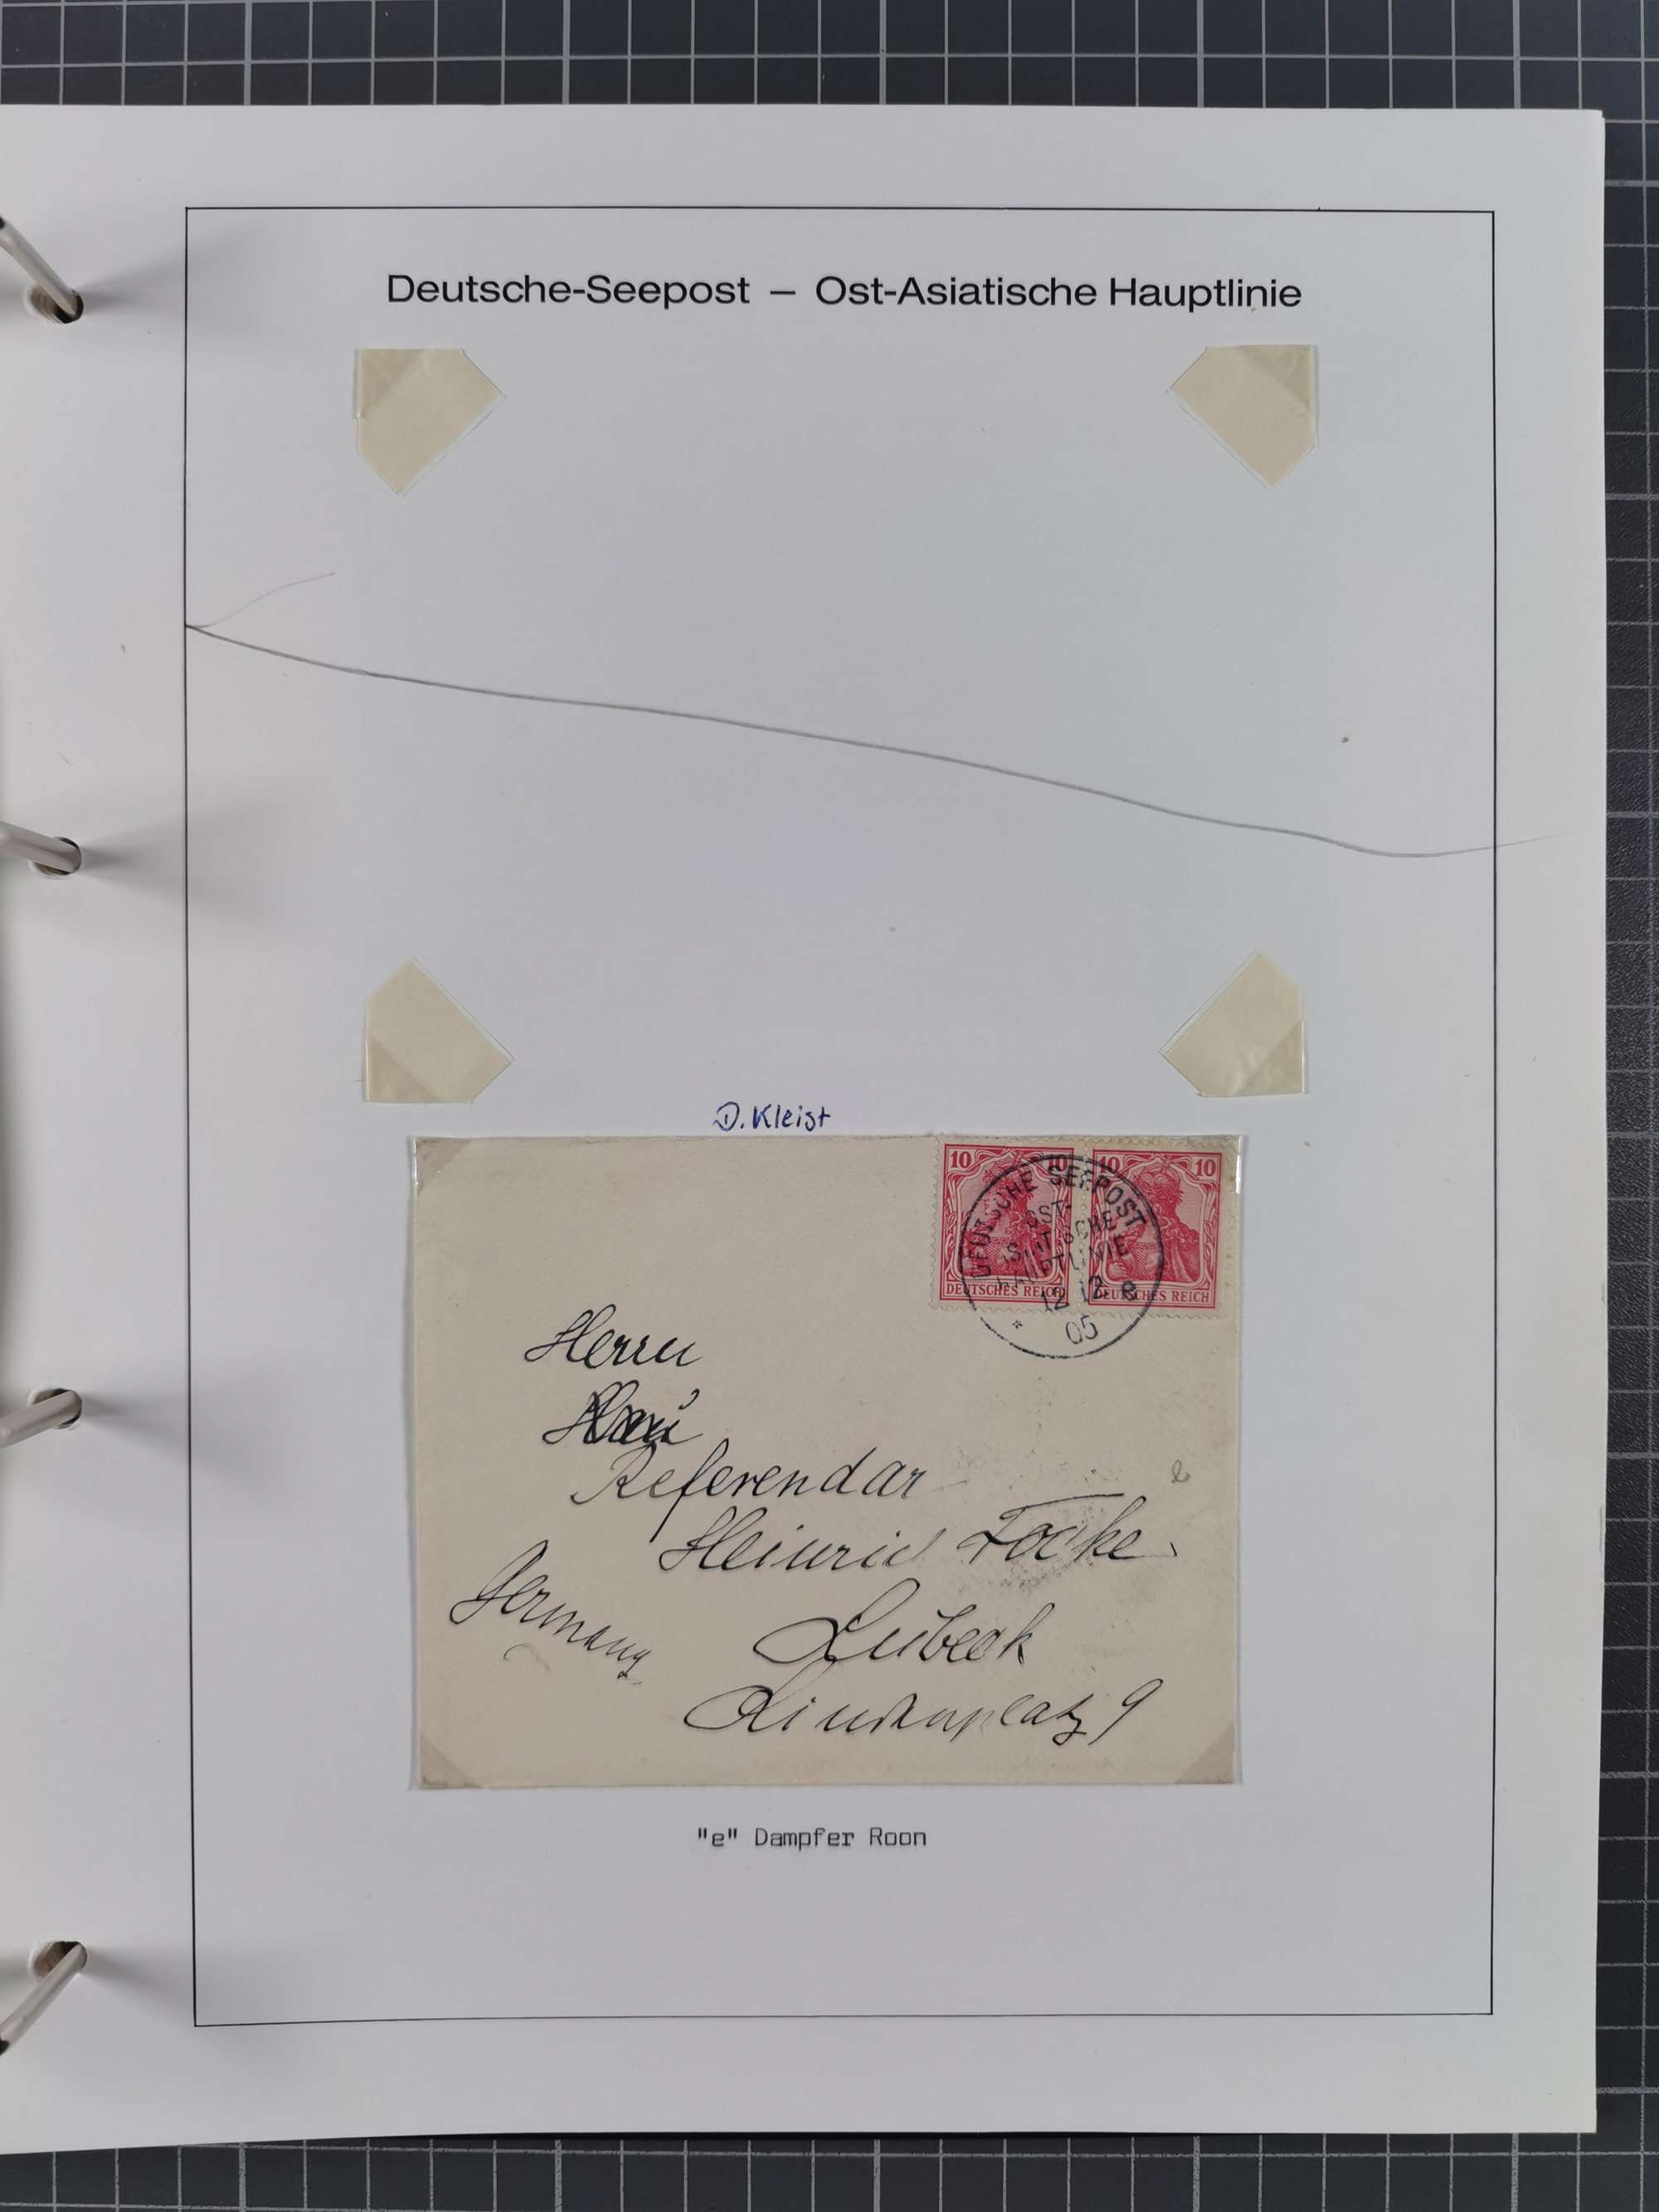 Deutsche-Seepost – Ost-Asiatische Hauptlinie
D. Kleist
10 10 10 10
DEUTSCHE SEEPOST
OST-
ASIATISCHE
HAUPTLINIE
12 12 e
* 05
DEUTSCHES REICH DEUTSCHES REICH
Herrn
Referendar
e
Heinrich Focke
Germany
Lübeck
Lindenplatz 9
"e" Dampfer Roon